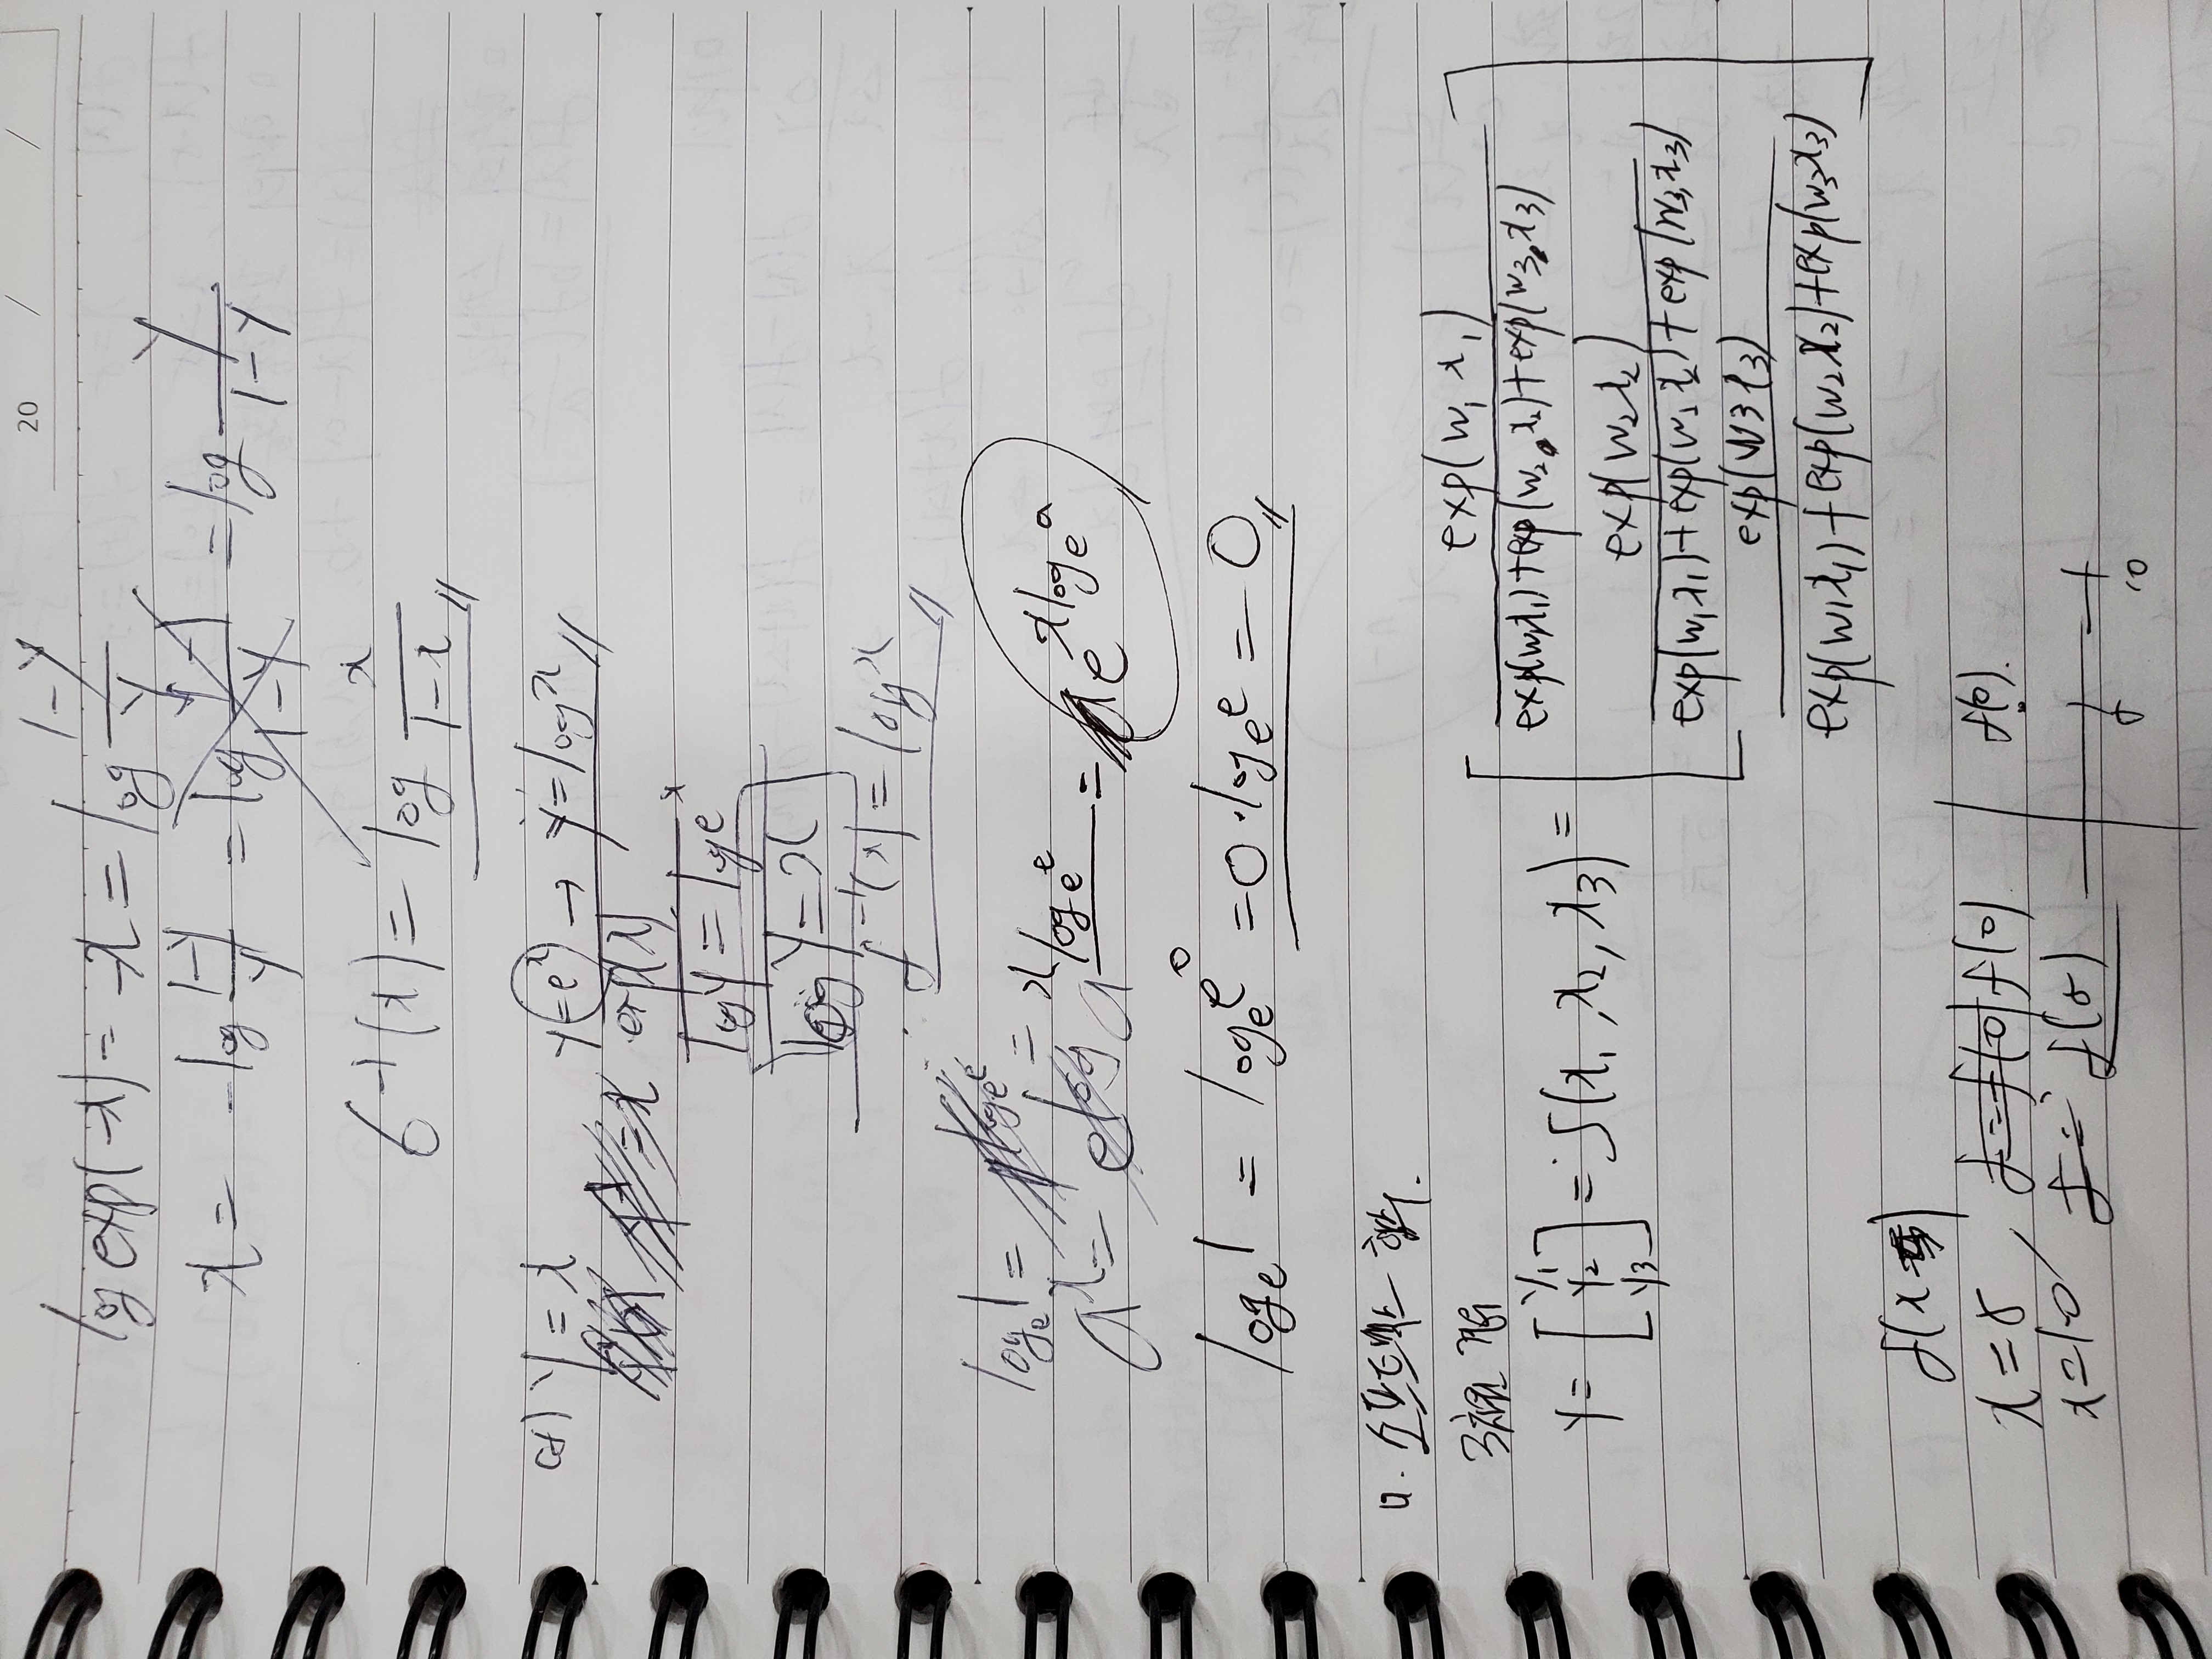 20 / /
log exp(-x) = -x = log (1-y)/y
x = -log (1-y)/y = log (y-1)/(1-y) = log y/(1-y)
σ⁻¹(x) = log x/(1-x)
cf) y = x y = eˣ → y = log x
exp(x)
log y = log eˣ
log y = x
f⁻¹(x) = log x
logₑ 1 = logₑ e =
aˣ = e log a x logₑ e = e^(x logₑ a)
logₑ 1 = logₑ e⁰ = 0 · logₑ e = 0
소프트맥스 함수.
3차원 경우
y = [y₁ y₂ y₃] = S(x₁, x₂, x₃) = [
exp(w₁x₁) / exp(w₁x₁) + exp(w₂x₂) + exp(w₃x₃)
exp(w₂x₂) / exp(w₁x₁) + exp(w₂x₂) + exp(w₃x₃)
exp(w₃x₃) / exp(w₁x₁) + exp(w₂x₂) + exp(w₃x₃) ]
f(x-5)
x = 5 f = f(0) f(0) f(0).
x = 10 f = f(5)
5 10